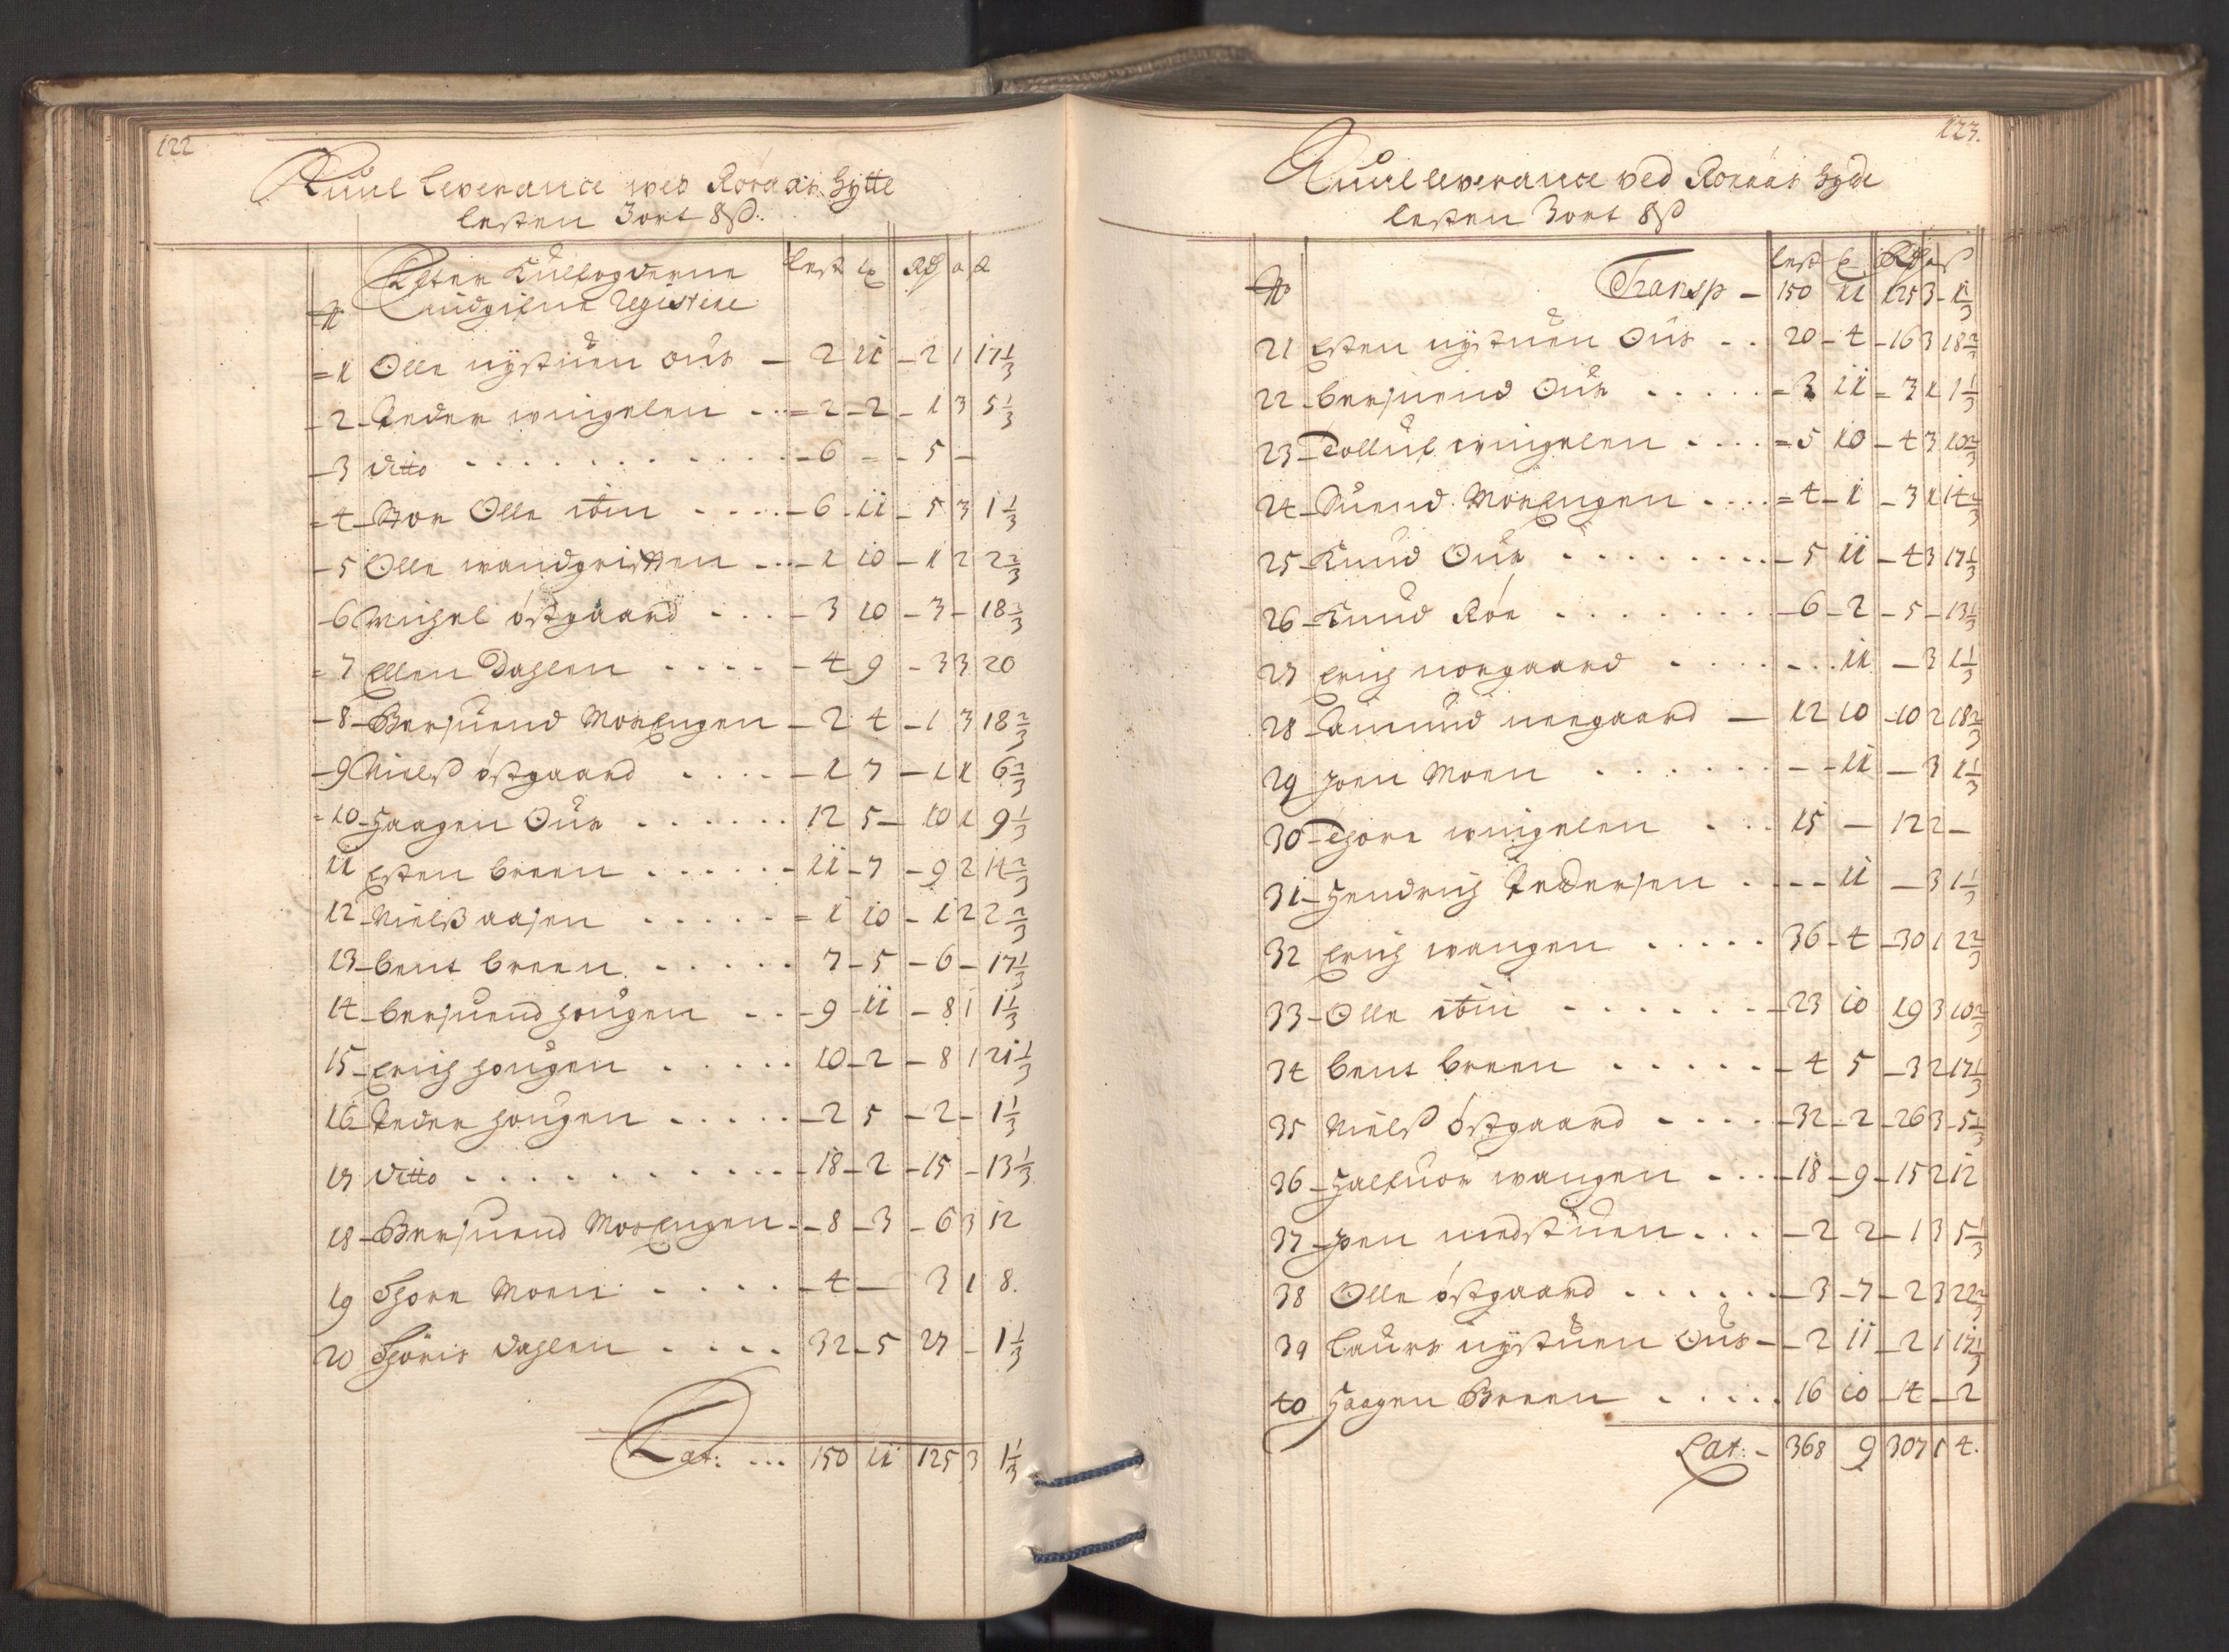 122
Kuul leverance ved Röraas Hytte
lesten 3 ort 8 ß:
Efter Kulfogderne
indgifne Registere
No Lest lp Rd o ß
1 Olle nystuen ous — 2 11 — 2 1 17 1/3
2 Peder wingelen — 2 — 2 — 1 3 5 1/3
3 ditto — 6 — 5 —
4 Stor Olle ibm — 6 — 11 — 5 3 1 1/3
5 Olle wandgrissen — 1 10 — 1 2 2 2/3
6 Michel östgaard — 3 10 — 3 — 18 2/3
7 Ellen Dahlen — 4 9 — 3 3 20
8 Bersuend MorEngen — 2 4 — 1 3 18 2/3
9 Nielß östgaard — 1 7 — 1 1 6 2/3
10 Haagen Ous 12 5 — 10 1 9 1/3
11 Esten breen — 11 — 7 — 9 2 14 2/3
12 Nielß aasen — 1 10 — 1 2 2 2/3
13 bent breen 7 — 5 — 6 — 17 1/3
14 bersuend hougen — 9 — 11 — 8 1 1 1/3
15 Erich hougen 10 — 2 — 8 1 21 1/3
16 Peder hougen — 2 5 — 2 — 1 1/3
17 ditto — 18 — 2 — 15 — 13 1/3
18 Bersuend MorEngen — 8 — 3 — 6 3 12
19 Thore Moen — 4 — 3 1 8.
20 Thöris dahlen 32 — 5 27 — 1 1/3
Lat: ... 150 11 125 3 1 1/3
123.
Kuul leverance ved Röraas Hytte
lesten 3 ort 8 ß
lest lp Rd o ß
No Transp — 150 11 125 3 — 1 1/3
21 Esten nystuen Ous 20 — 4 — 16 3 18 2/3
22 bersuend Ous — 3 11 — 3 1 1 1/3
23 Tolluf wingelen — 5 10 — 4 3 10 2/3
24 Suend MorEngen — 4 — 1 — 3 1 14 2/3
25 Knud Ous — 5 11 — 4 3 17 1/3
26 Knud Röe — 6 — 2 — 5 — 13 1/3
27 Erich norgaard 11 — 3 1 1/3
28 Amund neegaard — 12 10 — 10 2 18 2/3
29 joen Moen — 11 — 3 1 1/3
30 Thore wingelen 15 — 12 2 —
31 Hendrich Pedersen — 11 — 3 1 1/3
32 Erich wangen 36 — 4 — 30 1 2 2/3
33 Olle ibm — 23 10 19 3 10 2/3
34 bent breen — 4 5 — 3 2 17 1/3
35 Nielß östgaard — 32 — 2 — 26 3 — 5 1/3
36 Halfuor wangen — 18 — 9 — 15 2 12
37 joen nedstuen — 2 2 — 1 3 5 1/3
38 Olle östgaard — 3 — 7 — 2 3 22 2/3
39 Laurs nystuen Ous — 2 11 — 2 1 17 1/3
40 Haagen Breen 16 10 — 14 — 2
Lat: — 368 9 307 1 4.